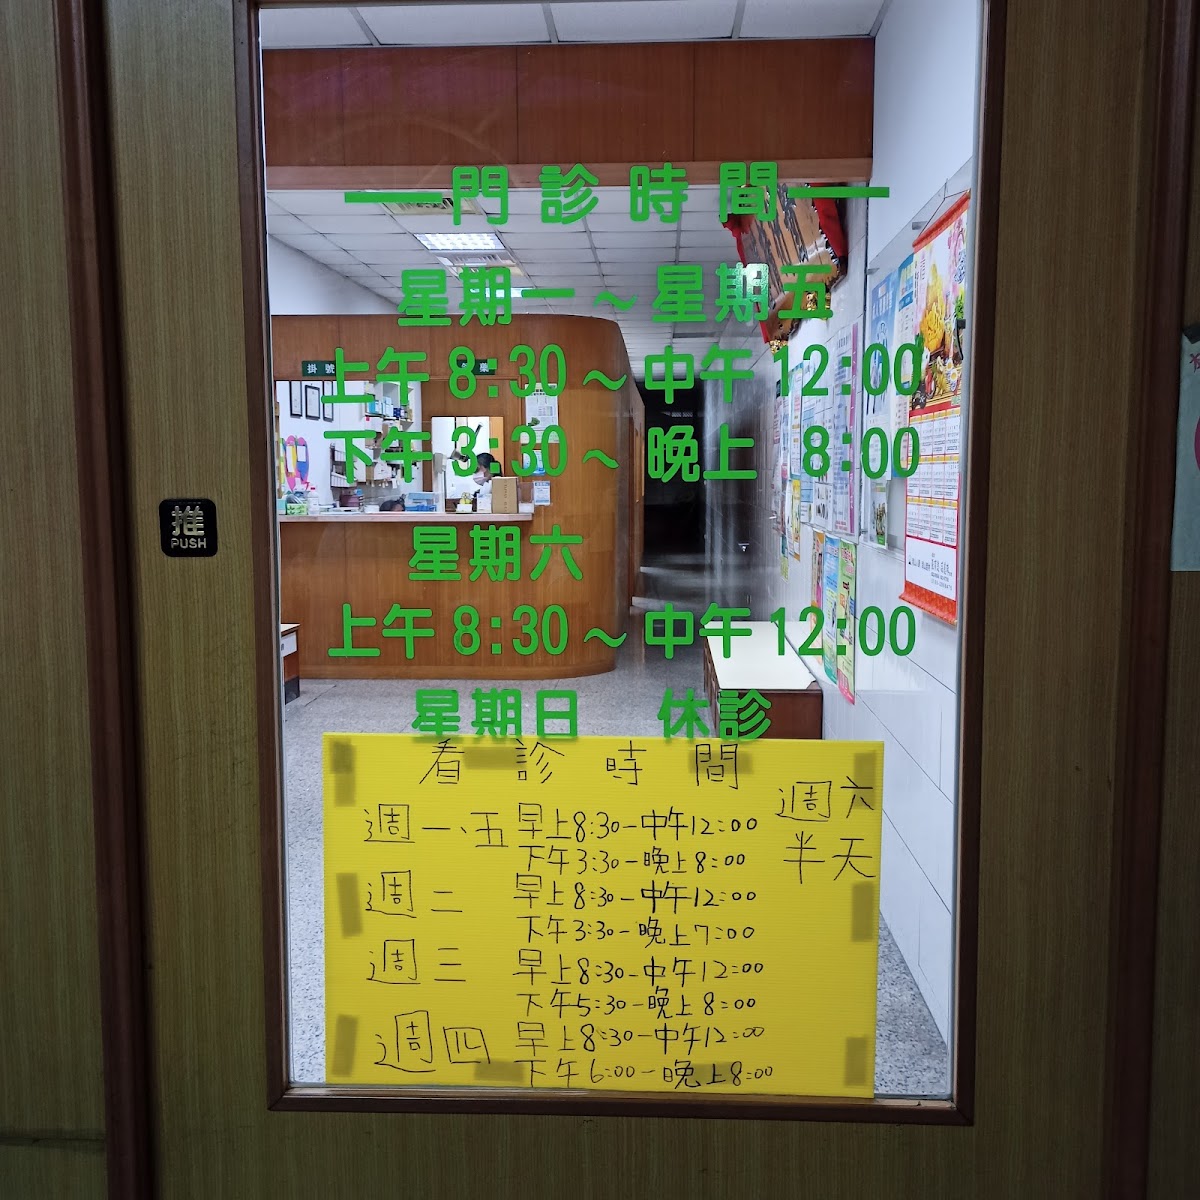 門診時間
星期一～星期五
上午 8:30～中午 12:00
下午 3:30～晚上 8:00
星期六
上午 8:30～中午 12:00
星期日 休診
掛號
推
PUSH
看診時間
週一、五 早上8:30-中午12:00
下午3:30-晚上8:00
週二 早上8:30-中午12:00
下午3:30-晚上7:00
週三 早上8:30-中午12:00
下午5:30-晚上8:00
週四 早上8:30-中午12:00
下午6:00-晚上8:00
週六
半天